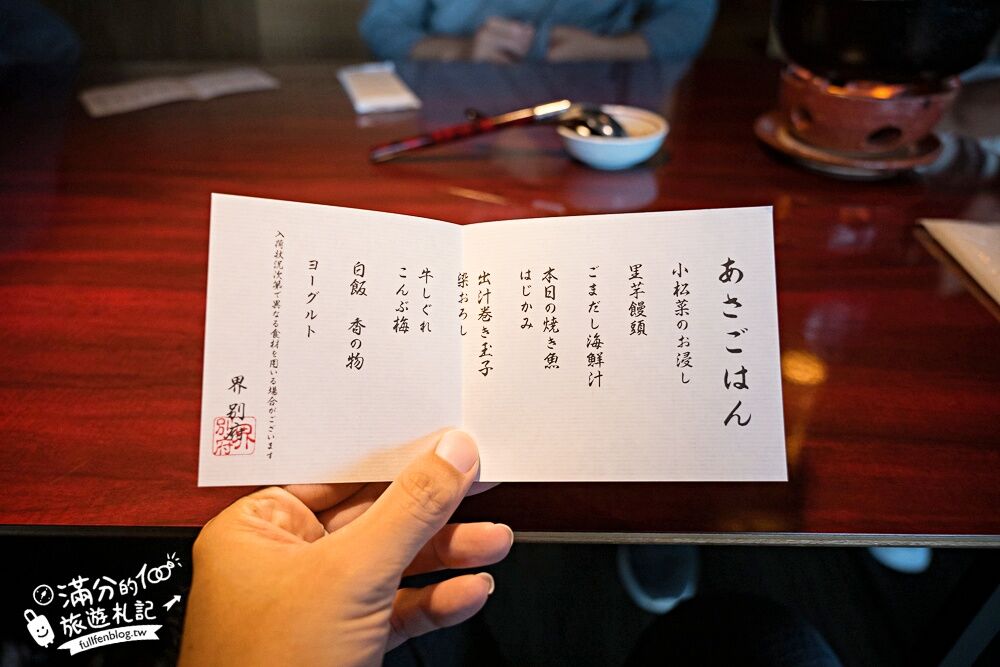 あさごはん
小松菜のお浸し
里芋饅頭
ごまだし海鮮汁
本日の焼き魚
はじかみ
出汁巻き玉子
染おろし
牛しぐれ
こんぶ梅
白飯　香の物
ヨーグルト
入荷状況次第で異なる食材を用いる場合がございます
界 別府
界
別府
滿分的100
旅遊札記
fullfenblog.tw